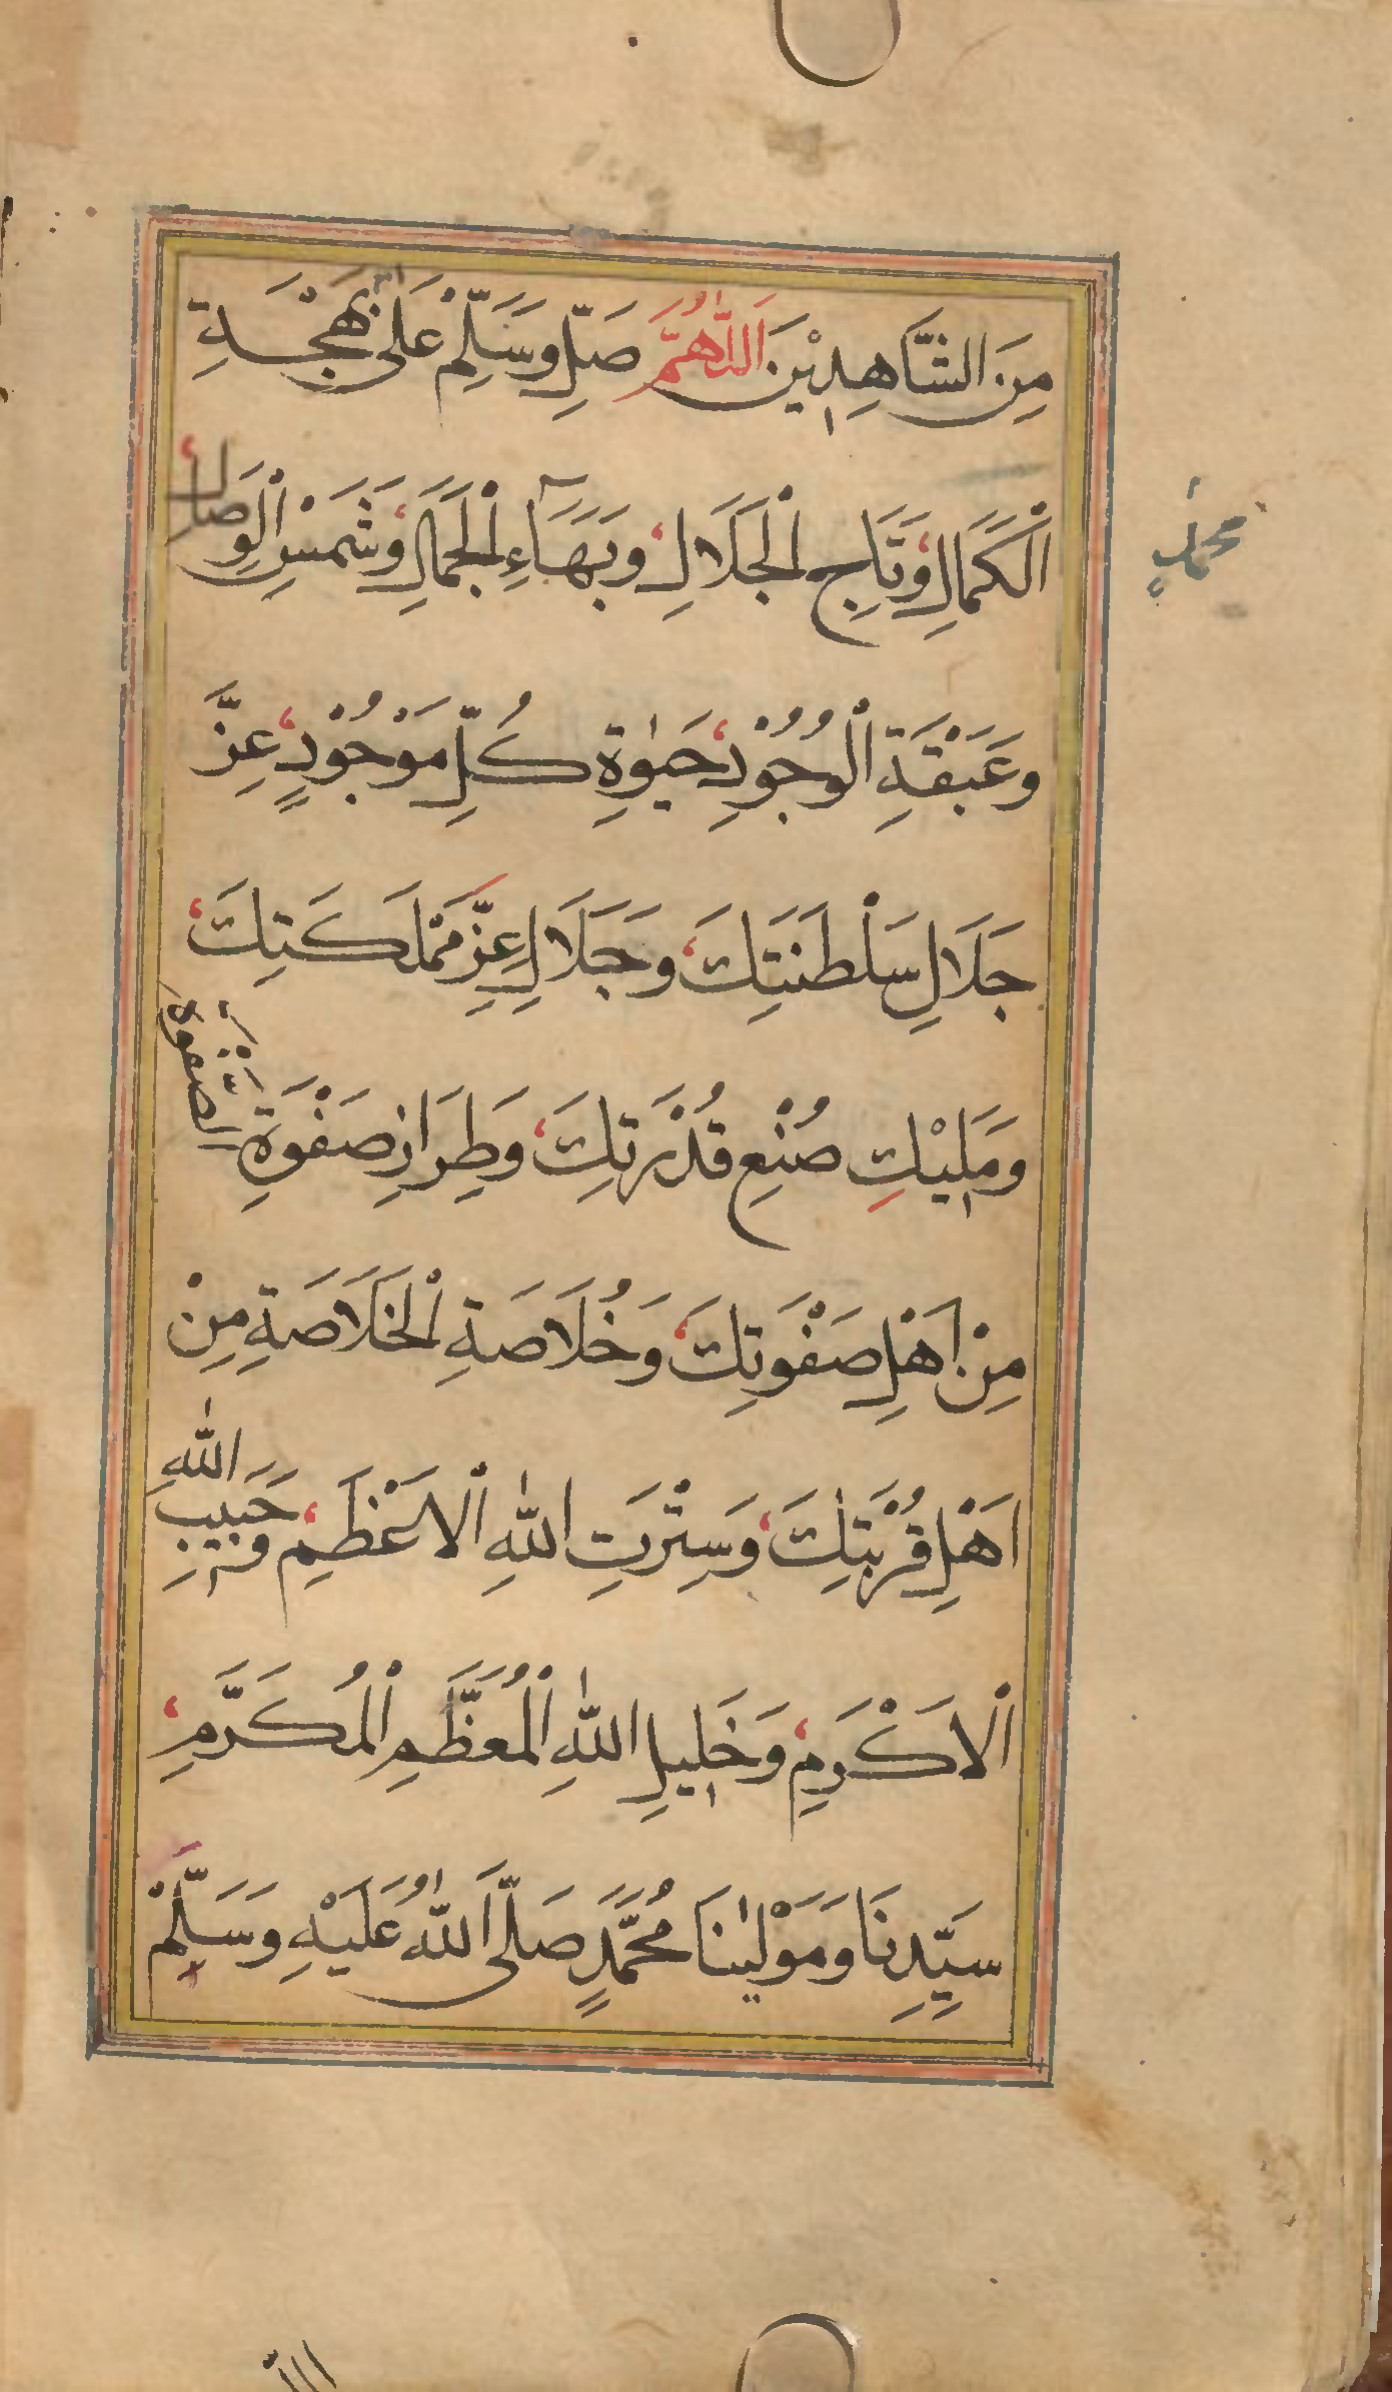 مِنَ الشَّاهِدِيْنَ اَللّٰهُمَّ صَلِّ وَسَلِّمْ عَلٰى بَهْجَةِ
الْكَمَالِ وَتَاجِ الْجَلَالِ وَبَهَآءِ الْجَمَالِ وَشَمْسِ الْوِصَالِ
محمدٍ
وَعَبْقَةِ الْوُجُوْدِ حَيٰوةِ كُلِّ مَوْجُوْدٍ عِزِّ
جَلَالِ سَلْطَنَتِكَ وَجَلَالِ عِزِّ مَمْلَكَتِكَ
وَمَلِيْكِ صُنْعِ قُدْرَتِكَ وَطِرَازِ صَفْوَةِ الصَّفْوَةِ
مِنْ اَهْلِ صَفْوَتِكَ وَخُلَاصَةِ الْخَلَاصَةِ مِنْ
اَهْلِ قُرْبَتِكَ وَسِتْرِتِ اللّٰهِ الْاَعْظَمِ وَحَبِيبِ اللّٰهِ
الْاَكْرَمِ وَخَلِيلِ اللّٰهِ الْمُعَظَّمِ الْمُكَرَّمِ
سَيِّدِنَا وَمَوْلٰينَا مُحَمَّدٍ صَلَّى اللّٰهُ عَلَيْهِ وَسَلَّمْ